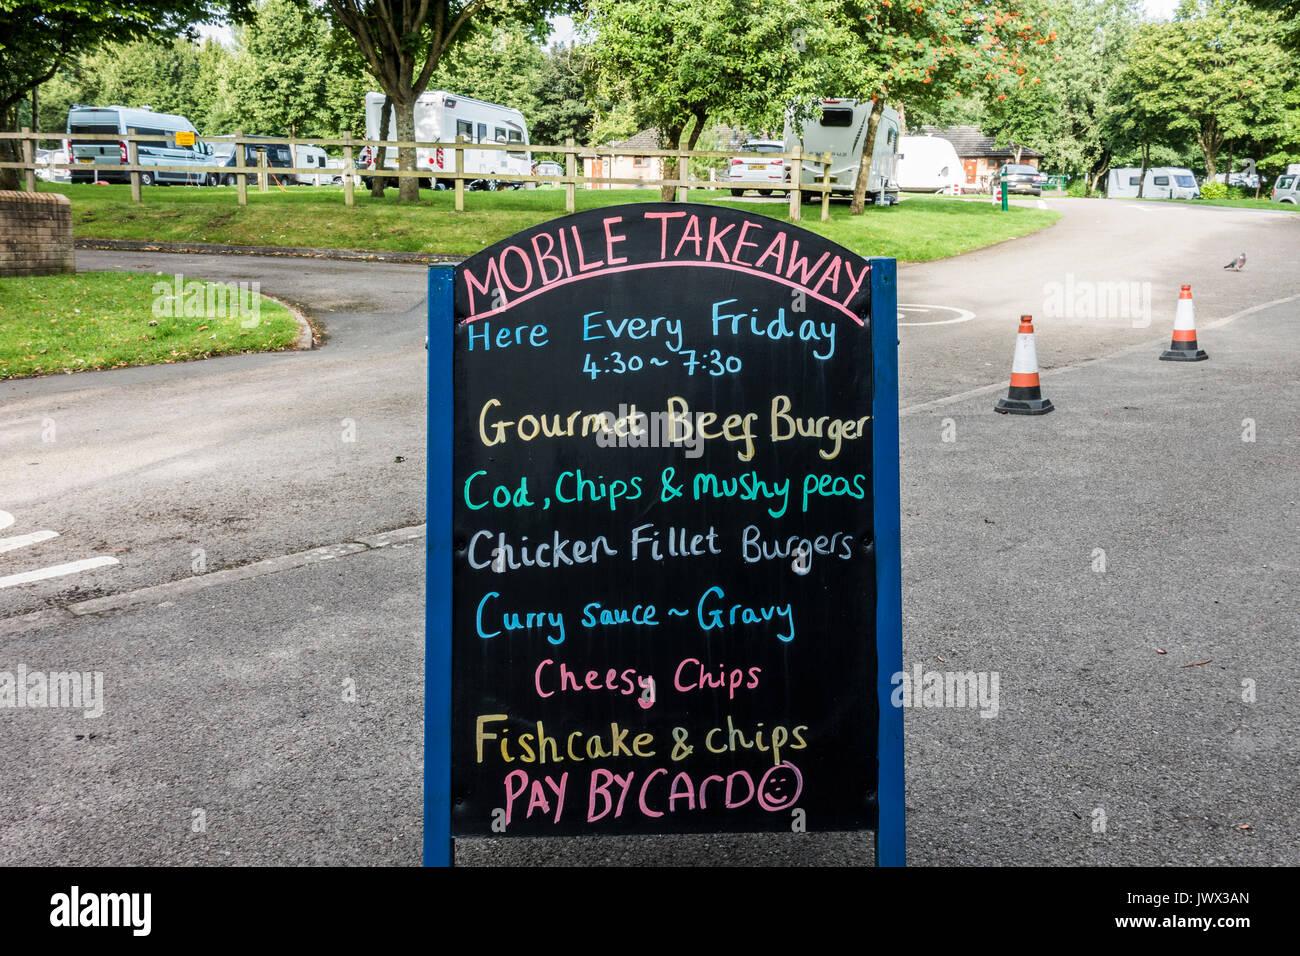 MOBILE TAKEAWAY
Here Every Friday
4:30~7:30
Gourmet Beef Burger
Cod, Chips & Mushy peas
Chicken Fillet Burgers
Curry sauce ~ Gravy
Cheesy Chips
Fishcake & chips
PAY BY CARD
alamy
alamy
Image ID: JWX3AN
www.alamy.com